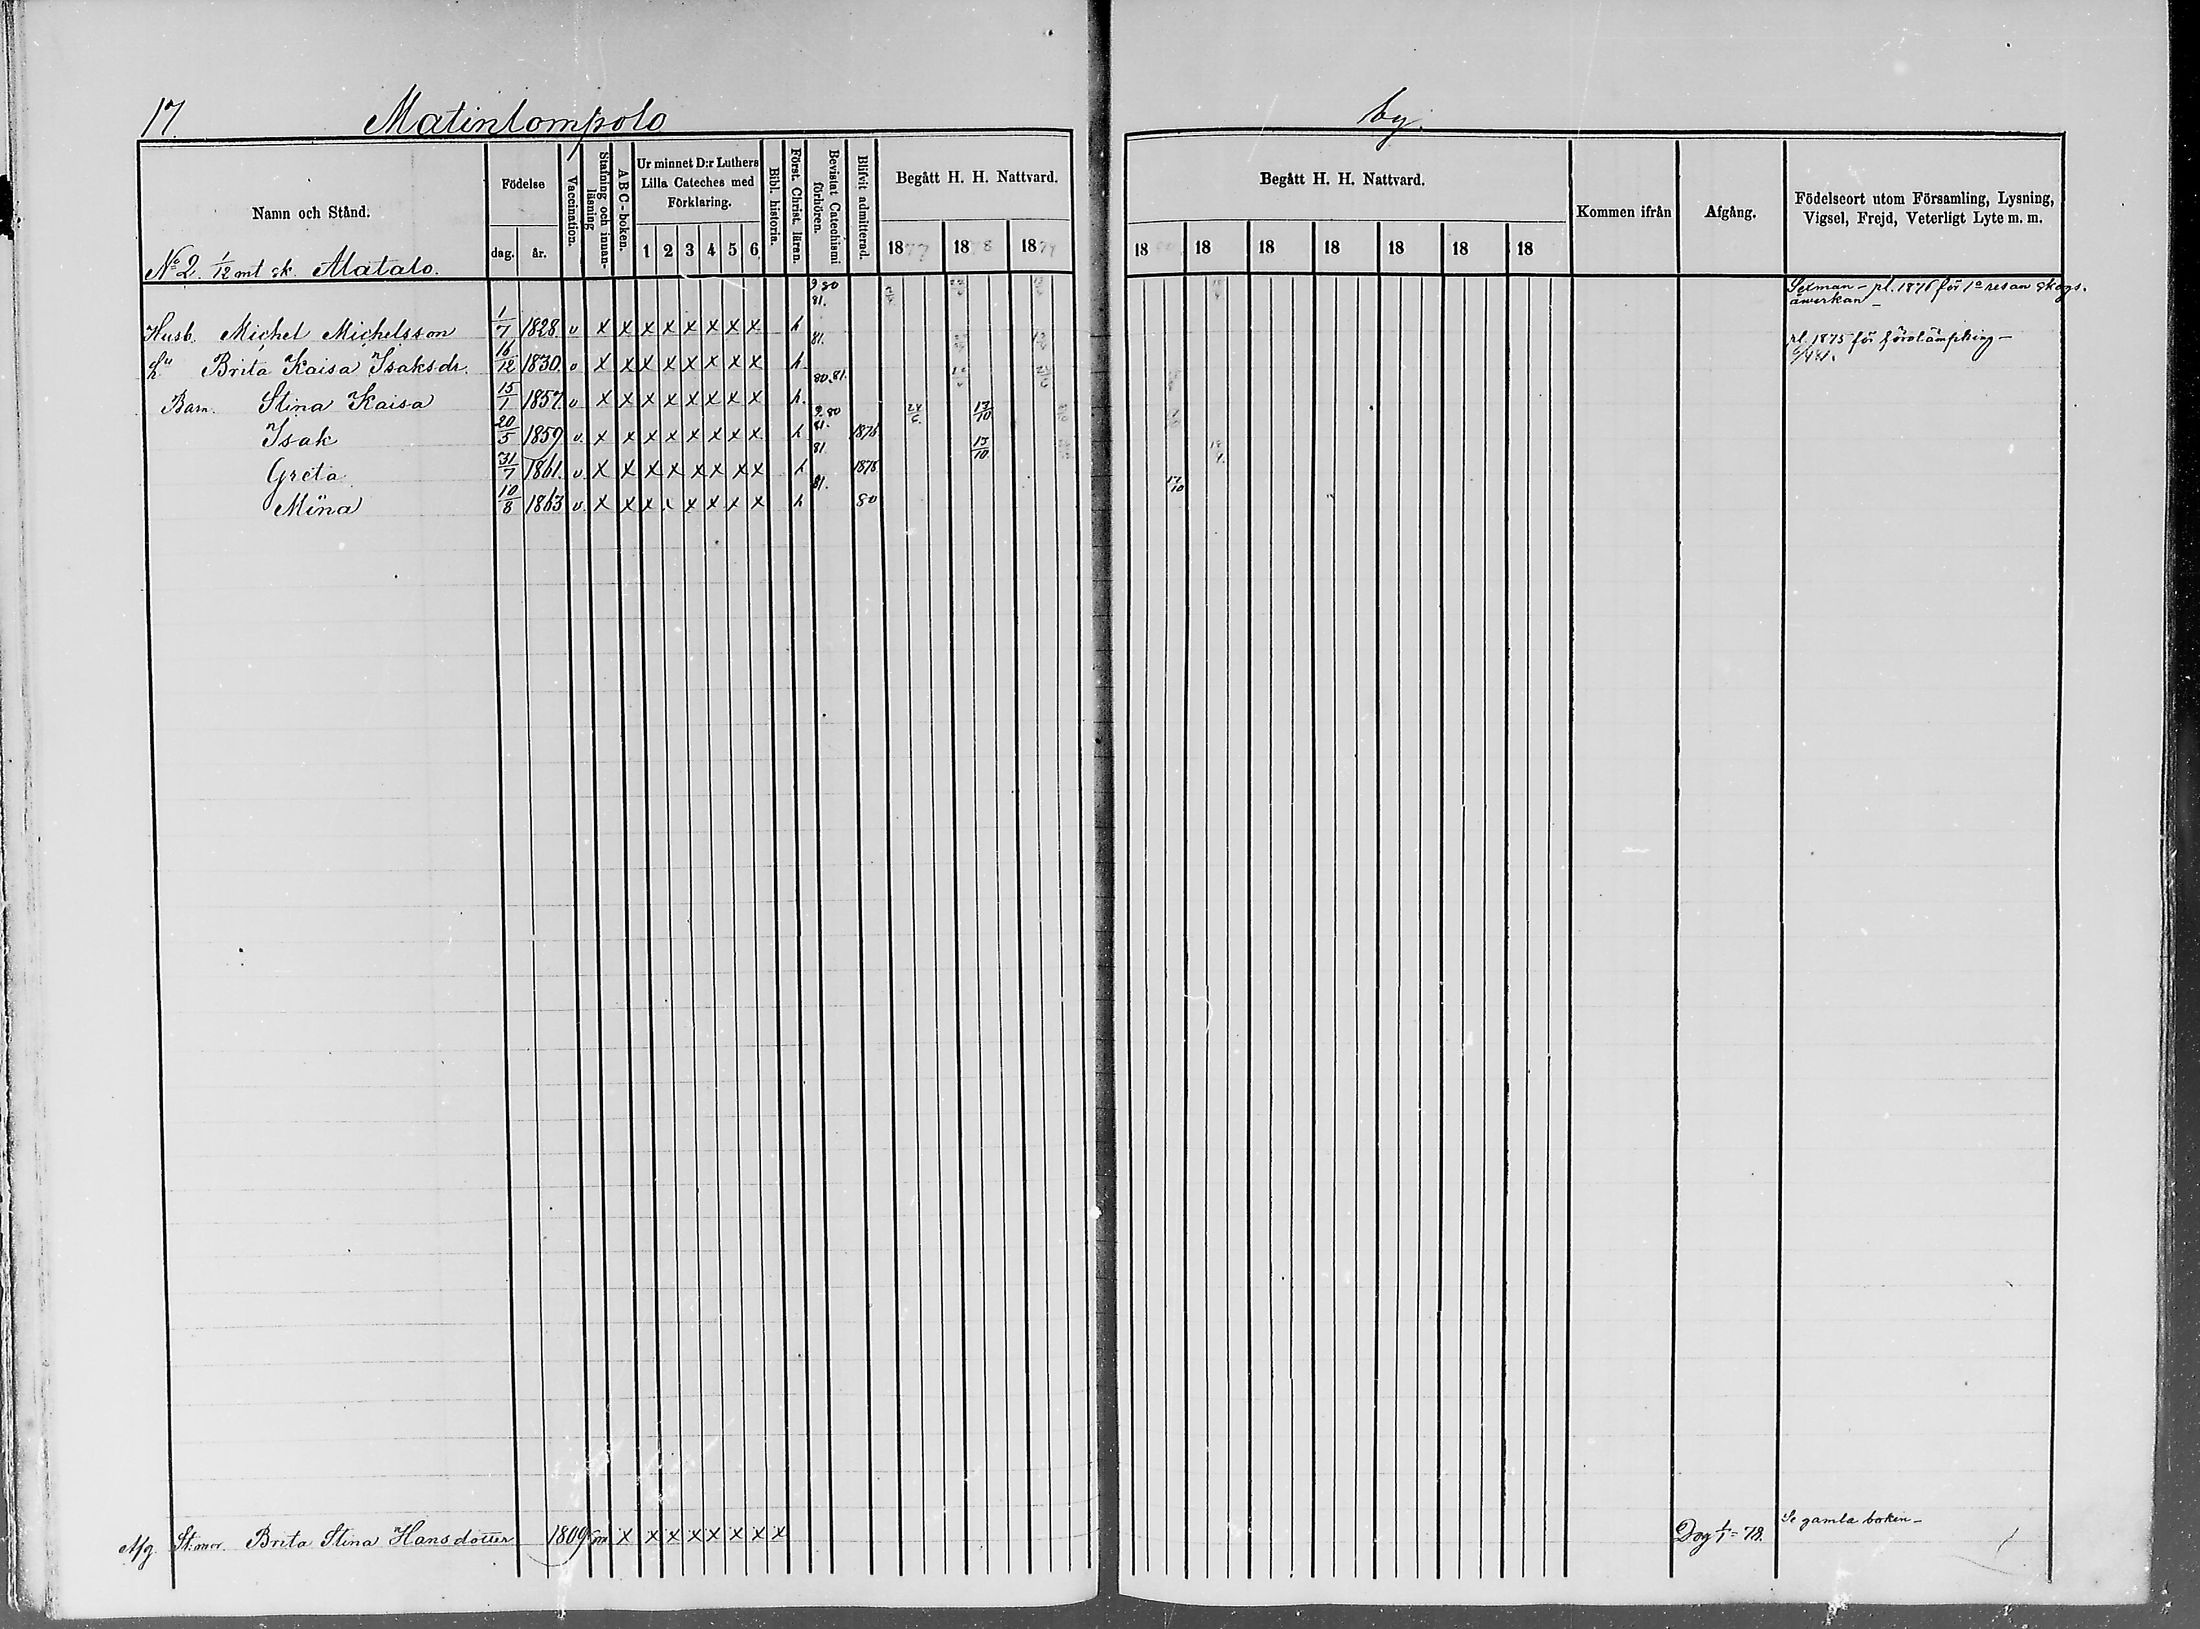 17. Matinlompolo by.
Namn och Stånd. Födelse Vaccination. Stafning och innanläsning A B C-boken. Ur minnet D:r Luthers Lilla Cateches med Förklaring. Bibl. historia. Först. Christ. läran. Bevistat Catechismi förhören. Blifvit admitterad. Begått H. H. Nattvard. Begått H. H. Nattvard. Kommen ifrån Afgång. Födelseort utom Församling, Lysning, Vigsel, Frejd, Veterligt Lyte m. m.
dag. år. 1 2 3 4 5 6 1877 1878 1879 18 18 18 18 18 18 18
No 2. 1/12 mt sk. Alatalo.
9 80 81. Sexman - pl. 1876 för 1a resan skogs. åverkan -
Husb. Michel Michelsson 1/7 1828 v x x x x x x x x h
81. pl. 1875 för förolämpking -
Hu Brita Kaisa Isaksdr. 16/12 1830 v x x x x x x x x h.
80.81.
Barn. Stina Kaisa 15/1 1857 v x x x x x x x x h.
9.80 81. 24/6 13/10
Isak 20/5 1859 v. x x x x x x x x h 1876
81 13/10
Greta 31/7 1861. v x x x x x x x x h 1878
81. 17/10
Mina 10/8 1863 v. x x x x x x x x h 80
Se gamla boken -
Afg St:mor. Brita Stina Hansdotter 1809 x x x x x x x x Dog 1/1 = 78.